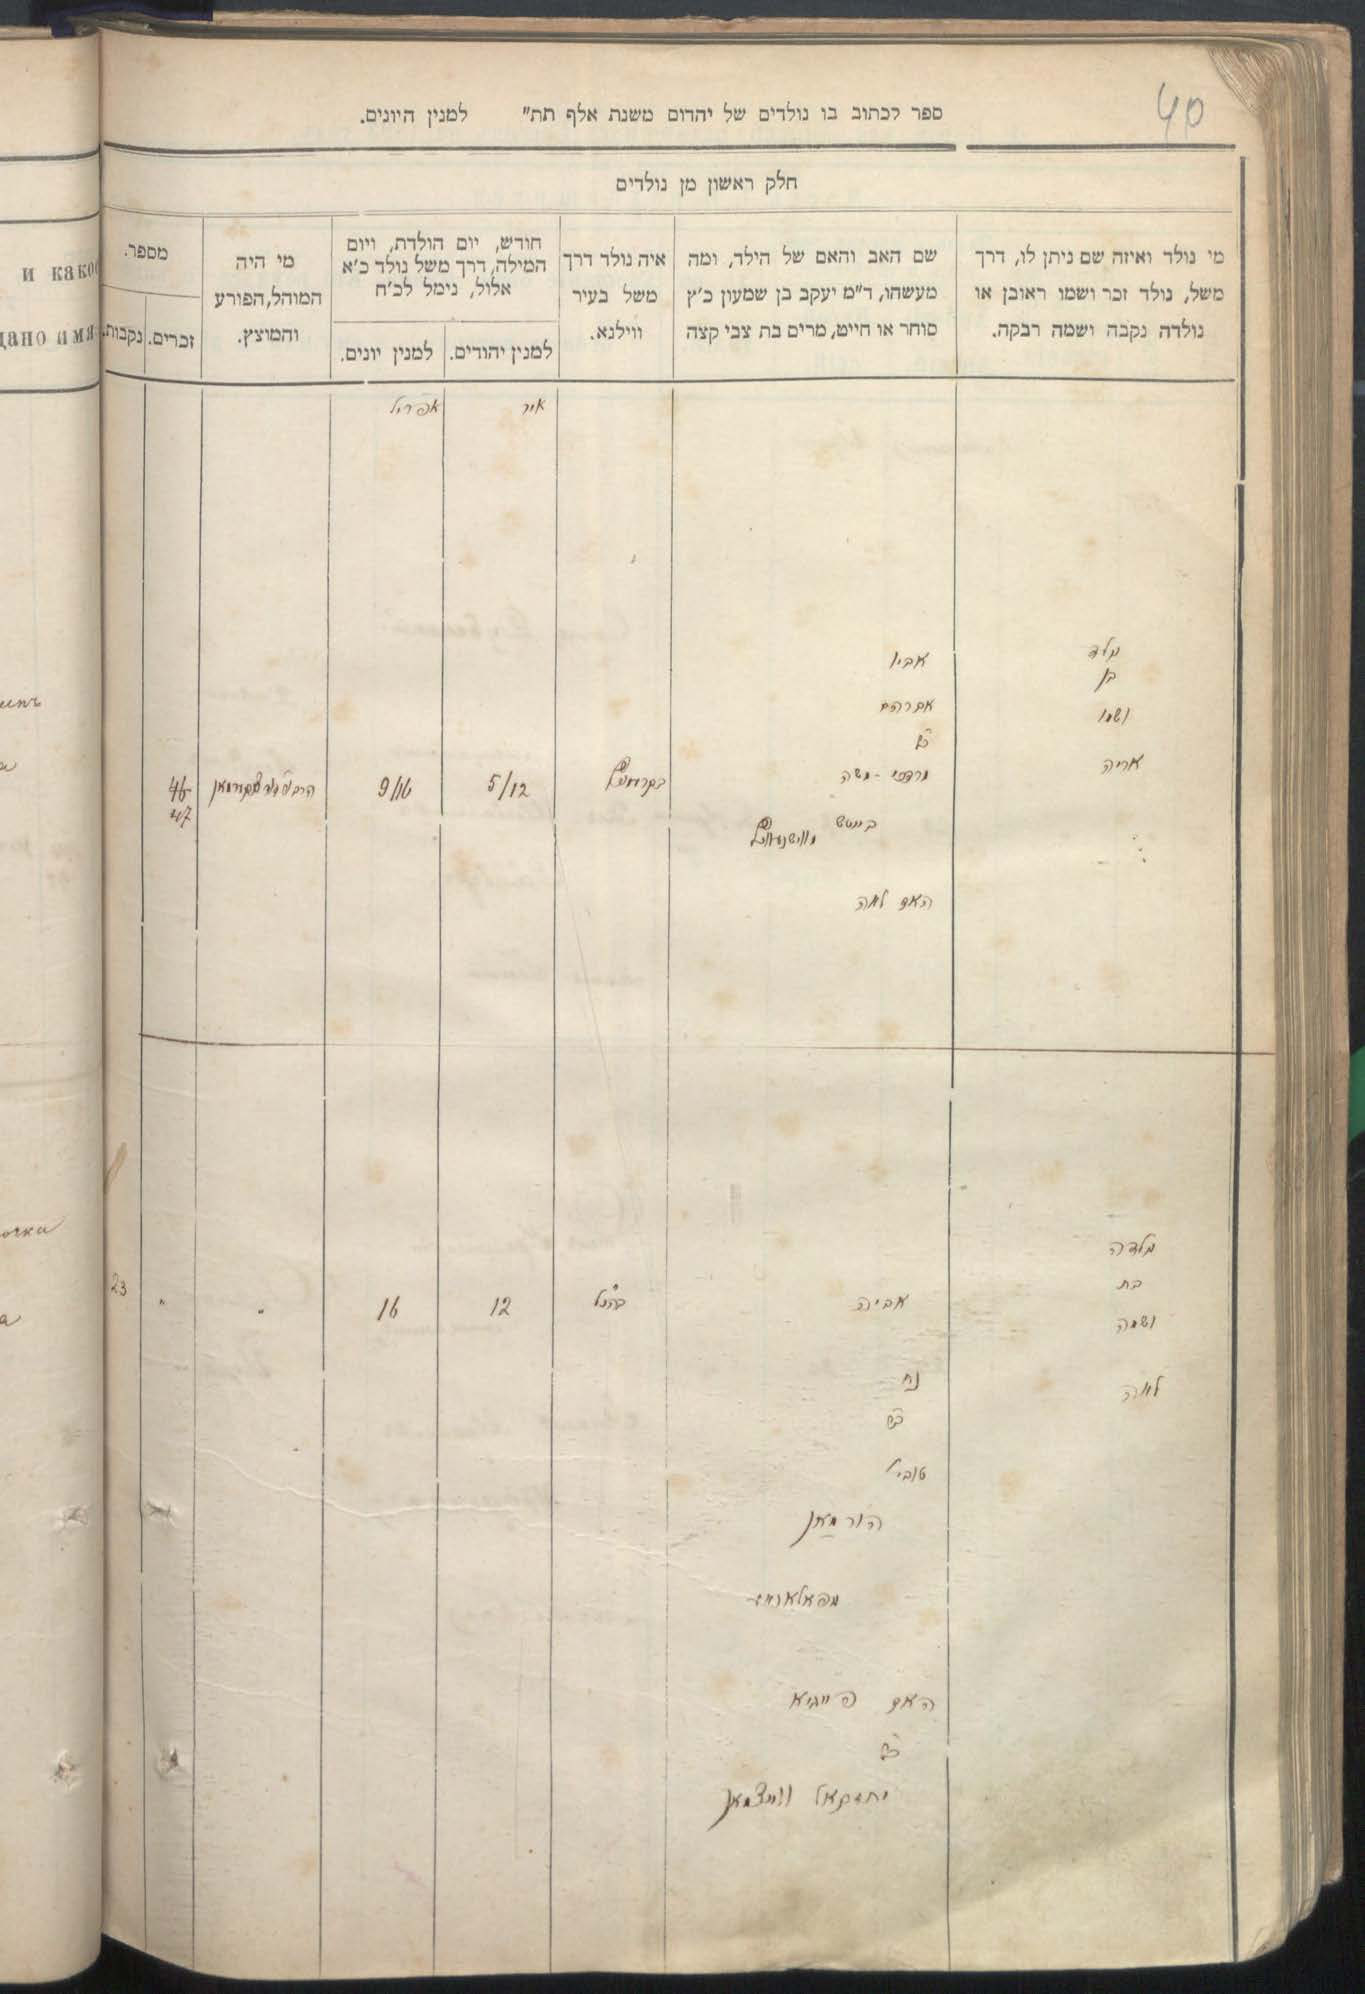 40
ספר לכתוב בו נולדים של יהדום משנת אלף תת״ למנין היונים.
חלק ראשון מן נולדים
מי נולד ואיזה שם ניתן לו, דרך
משל, נולד זכר ושמו ראובן או
נולדה נקבה ושמה רבקה.
שם האב והאם של הילד, ומה
מעשהו, ד״מ יעקב בן שמעון כ׳ץ
סוחר או חייט, מרים בת צבי קצה
איה נולד דרך
משל בעיר
ווילנא.
חודש, יום הולדת, ויום
המילה, דרך משל נולד כ׳א
אלול, נימל לכ׳ח
למנין יהודים.
למנין יונים.
מי היה
המוהל, הפורע
והמוצץ.
מספר.
זכרים.
נקבות.
איר
אפריל
נולד
בן
ושמו
אריה
אביו
אברהם
ב״ר
מרדכי - משה
האם לאה
5/12
9/16
46
47
נולדה
בת
ושמה
לאה
אביה
נח
ב״ר
טוביל
הורמאן
האם פייגא
ב״ר
יחזקאל ווייצמאן
כנ״ל
12
16
"
"
23
и како
дано имя